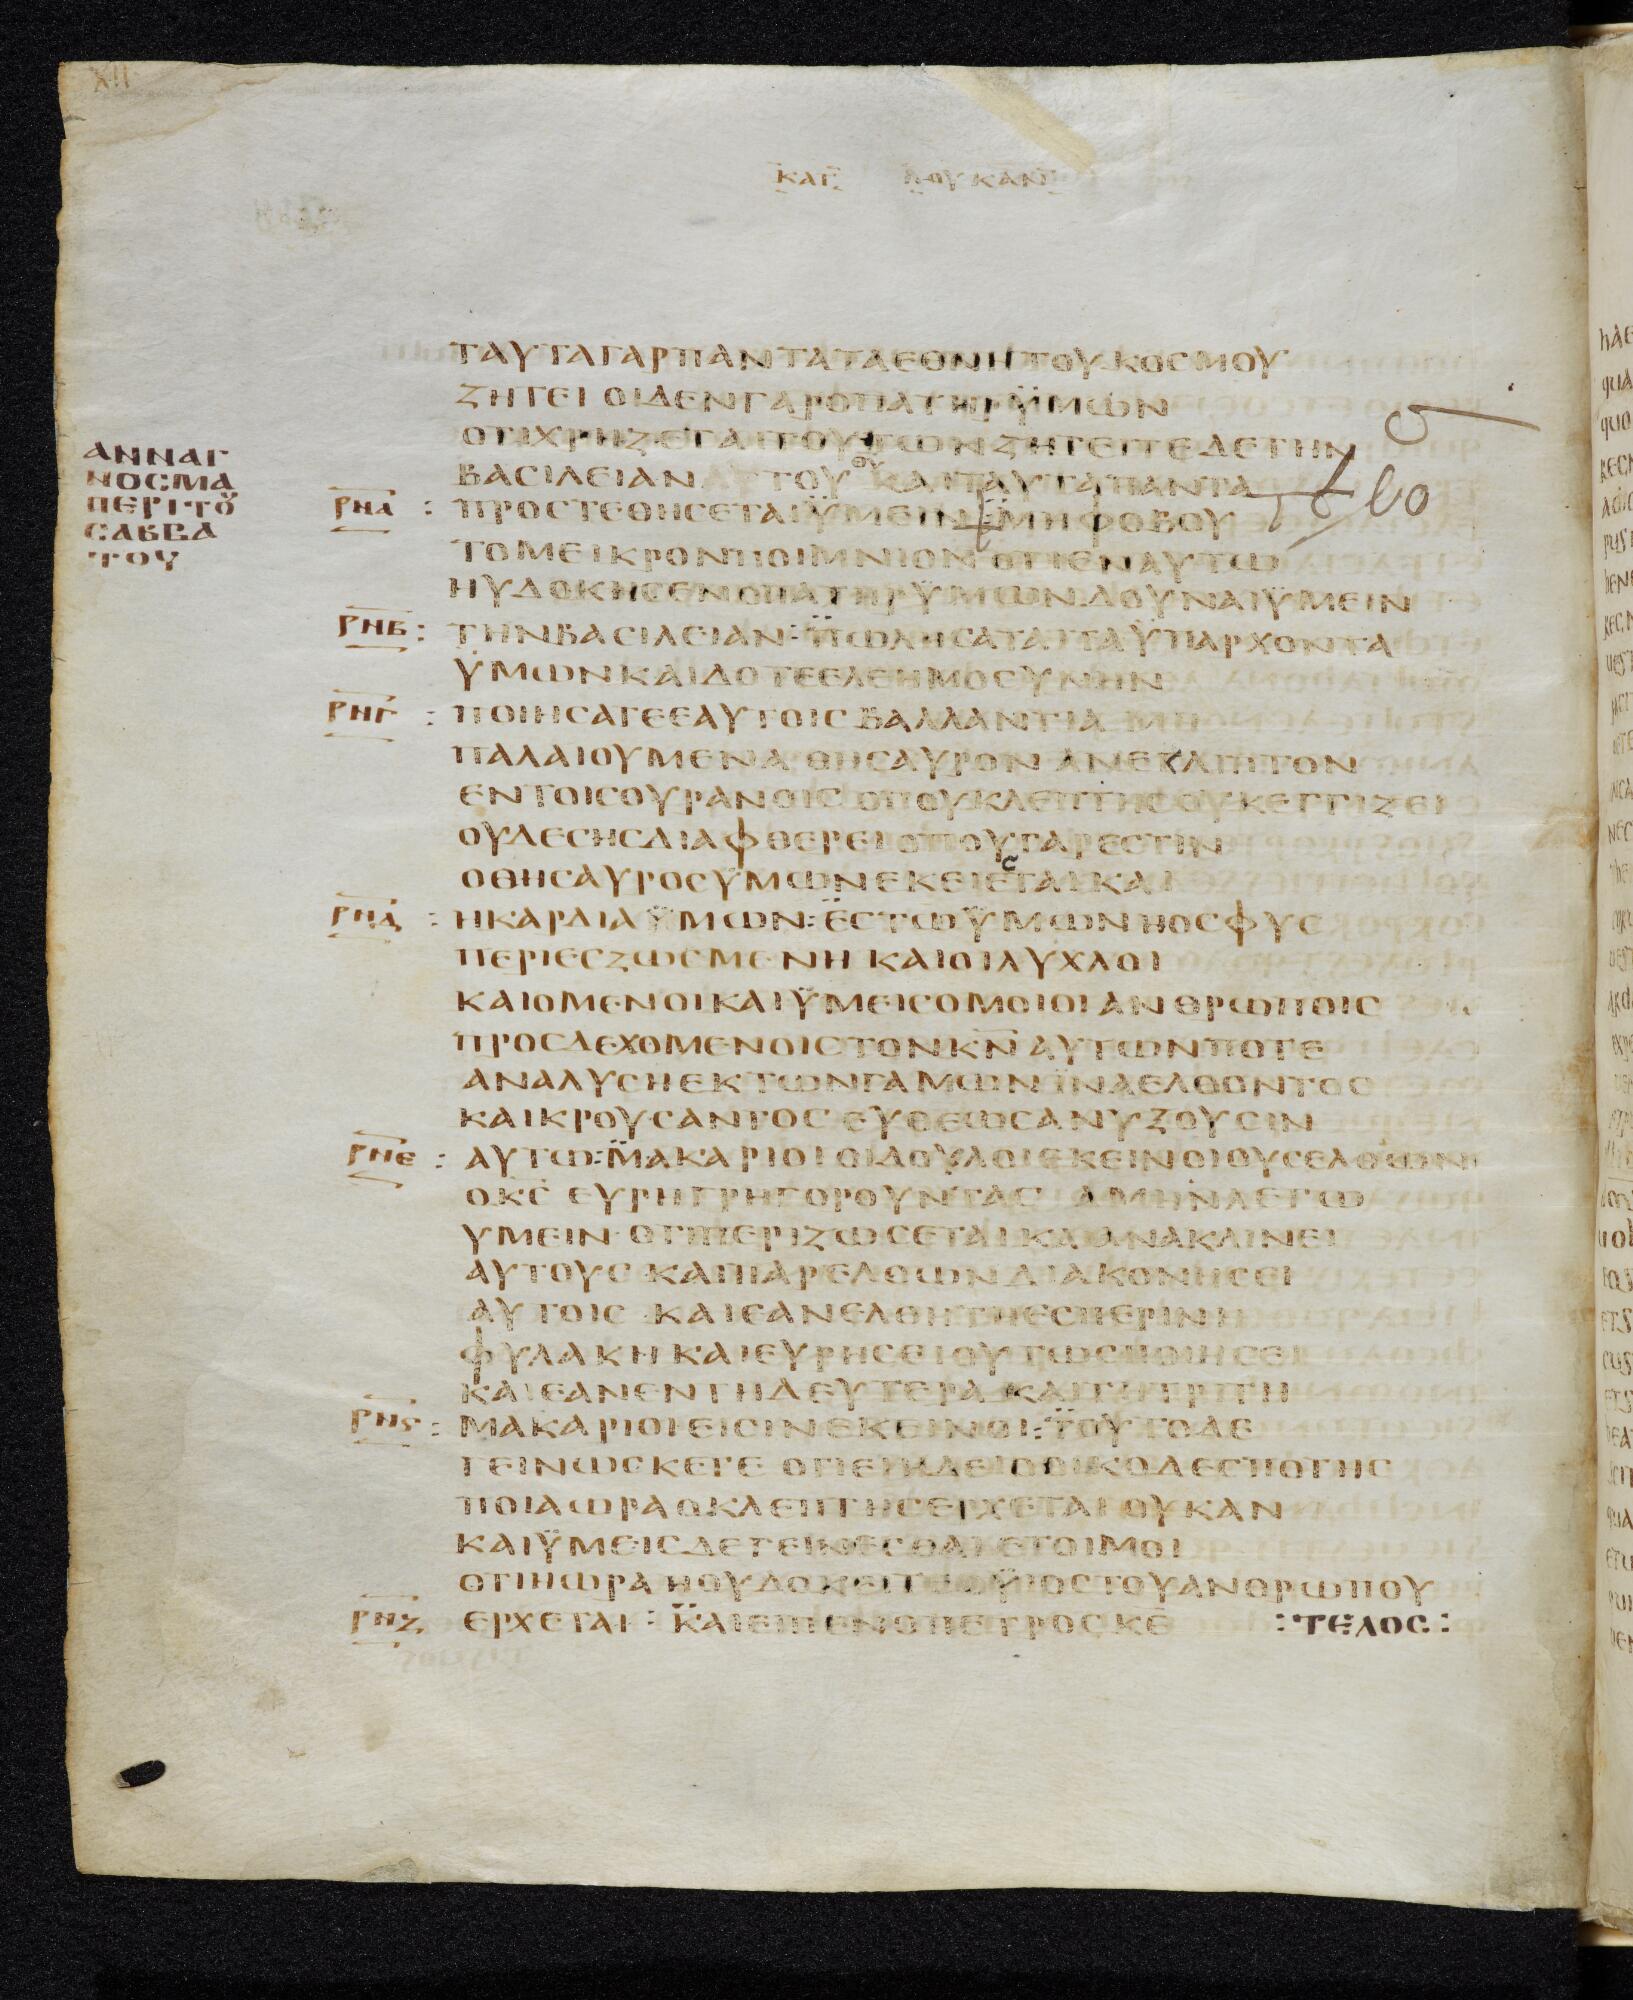 XII
ΚΑΤ ΛΟΥΚΑΝ
ΤΑΥΤΑΓΑΡΠΑΝΤΑΤΑΕΘΝΗΤΟΥΚΟСΜΟΥ
ΖΗΤΕΙ ΟΙΔΕΝΓΑΡΟΠΑΤΗΡΫΜΩΝ
ΟΤΙΧΡΗΖΕΤΑΙΤΟΥΤΩΝΖΗΤΕΙΤΕΔΕΤΗΝ
ΒΑСΙΛΕΙΑΝΑΥΤΟΥ ΚΑΙΤΑΥΤΑΠΑΝΤΑ
ΑΝΝΑΓ
ΝΟСΜΑ
ΠΕΡΙΤΟΥ
СΑΒΒΑ
ΤΟΥ
ΡΝΑ : ΠΡΟСΤΕΘΗСΕΤΑΙΫΜΕΙΝ : ΜΗΦΟΒΟΥ
ΤΟΜΕΙΚΡΟΝΠΟΙΜΝΙΟΝ ΟΤΙΕΝΑΥΤΩ
ΗΥΔΟΚΗСΕΝΟΠΑΤΗΡΫΜΩΝΔΟΥΝΑΙΫΜΕΙΝ
ΡΝΒ : ΤΗΝΒΑСΙΛΕΙΑΝ : ΠΩΛΗСΑΤΑΙΤΑΫΠΑΡΧΟΝΤΑ
ΫΜΩΝΚΑΙΔΟΤΕΕΛΕΗΜΟСΥΝΗΝ
ΡΝΓ : ΠΟΙΗСΑΤΕΕΑΥΤΟΙС ΒΑΛΛΑΝΤΙΑ ΜΗ
ΠΑΛΑΙΟΥΜΕΝΑ ΘΗСΑΥΡΟΝ ΑΝΕΚΛΙΠΤΟΝ
ΕΝΤΟΙСΟΥΡΑΝΟΙС ΟΠΟΥΚΛΕΠΤΗСΟΥΚΕΓΓΙΖΕΙ
ΟΥΔΕСΗСΔΙΑΦΘΕΡΕΙ ΟΠΟΥΓΑΡΕСΤΙΝ
ΟΘΗСΑΥΡΟСΫΜΩΝΕΚΕΙΕСΤΑΙΚΑΙ
ΡΝΔ : ΗΚΑΡΔΙΑΫΜΩΝ : ΕСΤΩΫΜΩΝΗΟСΦΥС
ΠΕΡΙΕСΖΩСΜΕΝΗ ΚΑΙΟΙΛΥΧΛΟΙ
ΚΑΙΟΜΕΝΟΙΚΑΙΫΜΕΙСΟΜΟΙΟΙΑΝΘΡΩΠΟΙС
ΠΡΟСΔΕΧΟΜΕΝΟΙСΤΟΝΚΝ ΑΥΤΩΝΠΟΤΕ
ΑΝΑΛΥСΗΕΚΤΩΝΓΑΜΩΝΪΝΑΕΛΘΟΝΤΟС
ΚΑΙΚΡΟΥСΑΝΤΟС ΕΥΘΕΩСΑΝΥΖΟΥСΙΝ
ΡΝΕ : ΑΥΤΩ : ΜΑΚΑΡΙΟΙΟΙΔΟΥΛΟΙΕΚΕΙΝΟΙΟΥСΕΛΘΩΝ
ΟΚС ΕΥΡΗΓΡΗΓΟΡΟΥΝΤΑС ΑΜΗΝΛΕΓΩ
ΥΜΕΙΝ ΟΤΙΠΕΡΙΖΩСΕΤΑΙΚΑΙΑΝΑΚΛΙΝΕΙ
ΑΥΤΟΥС ΚΑΙΠΑΡΕΛΘΩΝΔΙΑΚΟΝΗСΕΙ
ΑΥΤΟΙС ΚΑΙΕΑΝΕΛΘΗΤΗΕСΠΕΡΙΝΗ
ΦΥΛΑΚΗ ΚΑΙΕΥΡΗСΕΙΟΥΤΩСΠΟΙΗСΕΙ
ΚΑΙΕΑΝΕΝΤΗΔΕΥΤΕΡΑ ΚΑΙΤΗΤΡΙΤΗ
ΡΝϚ : ΜΑΚΑΡΙΟΙΕΙСΙΝΕΚΕΙΝΟΙ : ΤΟΥΤΟΔΕ
ΓΕΙΝΩСΚΕΤΕ ΟΤΙΕΙΗΔΕΙΟΟΙΚΟΔΕСΠΟΤΗС
ΠΟΙΑΩΡΑΟΚΛΕΠΤΗСΕΡΧΕΤΑΙ ΟΥΚΑΝ
ΚΑΙΫΜΕΙСΔΕΓΕΙΝΕСΘΑΙΕΤΟΙΜΟΙ
ΟΤΙΗΩΡΑΗΟΥΔΟΚΕΙΤΕΟΫΙΟСΤΟΥΑΝΘΡΩΠΟΥ
ΡΝΖ ΕΡΧΕΤΑΙ : ΚΑΙΕΙΠΕΝΟΠΕΤΡΟС ΚΕ : ΤΕΛΟС :